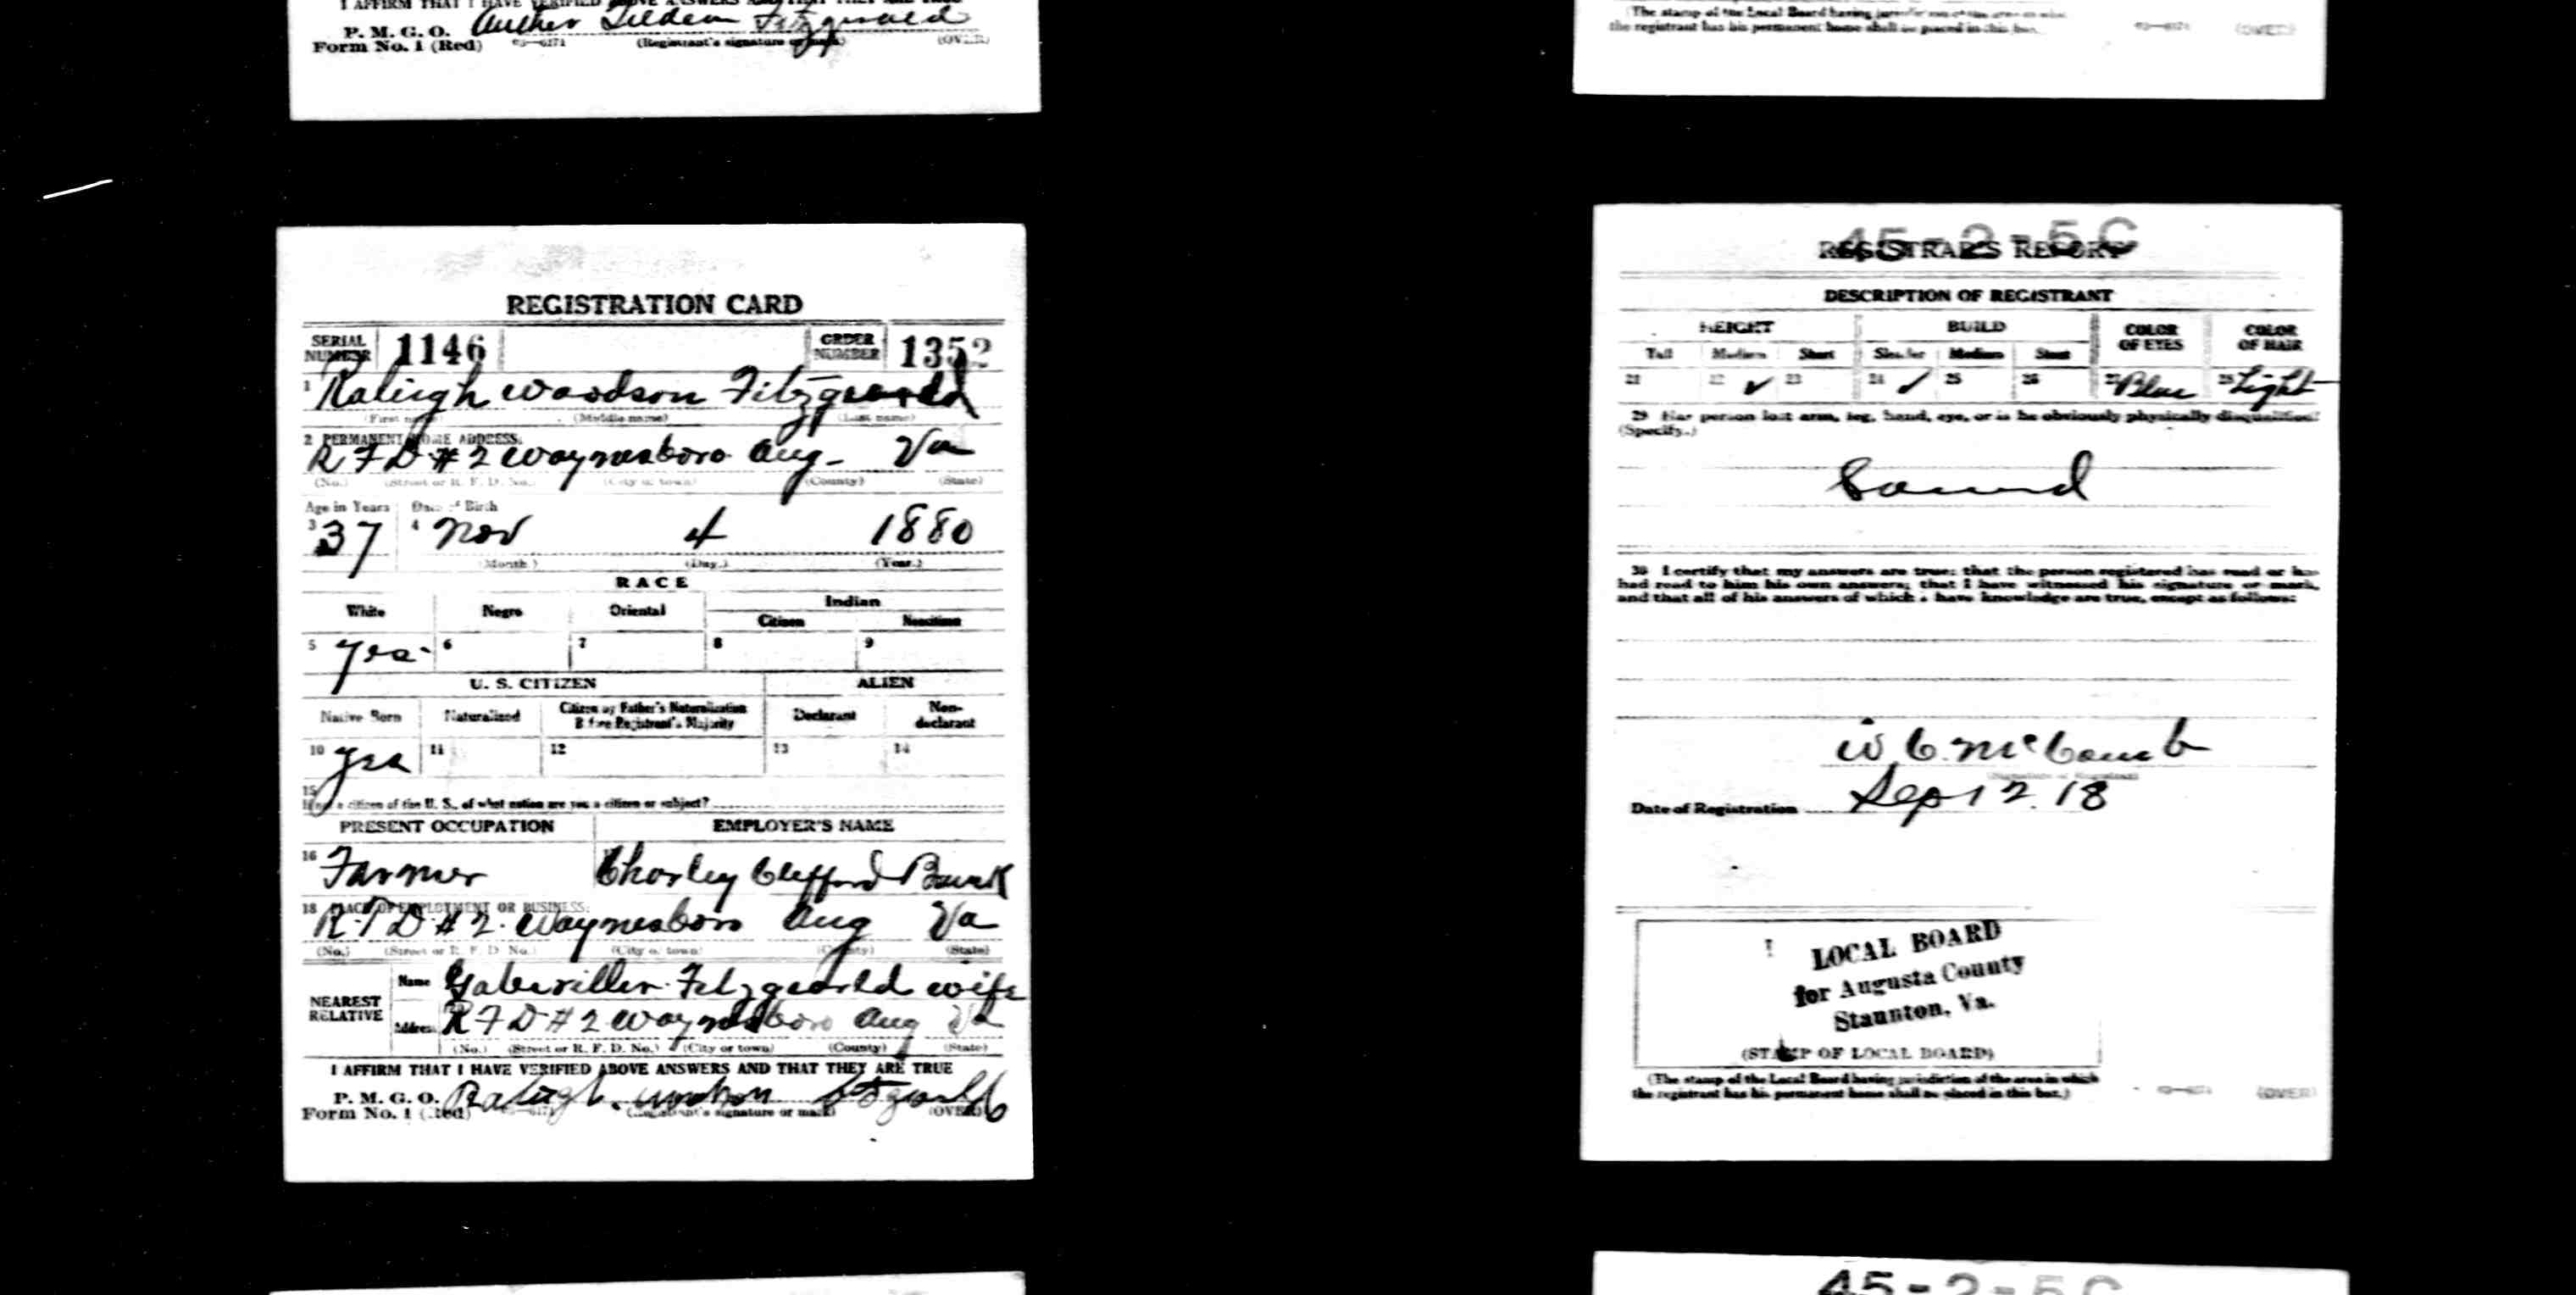 I AFFIRM THAT I HAVE VERIFIED ABOVE ANSWERS AND THAT THEY ARE TRUE
P. M. G. O.
Form No. 1 (Red) 03—6171 (Registrant's signature or mark) (OVER)
Tilden Fitzgerald
(The stamp of the Local Board having jurisdiction of the area in which
the registrant has his permanent home shall be placed in this box.) 03—6171 (OVER)
REGISTRATION CARD
SERIAL NUMBER 1146 ORDER NUMBER 1352
1 Raleigh Woodson Fitzgearld
(First name) (Middle name) (Last name)
2 PERMANENT HOME ADDRESS:
R F D # 2 Waynesboro Aug- Va
(No.) (Street or R. F. D. No.) (City or town) (County) (State)
Age in Years Date of Birth
3 37 4 Nov 4 1880
(Month.) (Day.) (Year.)
RACE
White Negro Oriental Indian
Citizen Noncitizen
5 Yes 6 7 8 9
U. S. CITIZEN ALIEN
Native Born Naturalized Citizen by Father's Naturalization Before Registrant's Majority Declarant Non-declarant
10 Yes 11 12 13 14
15
If not a citizen of the U. S., of what nation are you a citizen or subject?
PRESENT OCCUPATION EMPLOYER'S NAME
16 Farmer Charley Clifford
18 PLACE OF EMPLOYMENT OR BUSINESS:
R.F.D. # 2. Waynesboro Aug Va
(No.) (Street or R. F. D. No.) (City or town) (County) (State)
NEAREST RELATIVE
Name Fitzgearld wife
Address R F D # 2 Waynesboro Aug Va
(No.) (Street or R. F. D. No.) (City or town) (County) (State)
I AFFIRM THAT I HAVE VERIFIED ABOVE ANSWERS AND THAT THEY ARE TRUE
P. M. G. O. Raleigh
Form No. 1 (Red) 03—6171 (Registrant's signature or mark) (OVER)
45-2-5 C
REGISTRAR'S REPORT
DESCRIPTION OF REGISTRANT
HEIGHT BUILD COLOR OF EYES COLOR OF HAIR
Tall Medium Short Slender Medium Stout
21 22 ✓ 23 24 ✓ 25 26 27 Blue 28 Light
29 Has person lost arm, leg, hand, eye, or is he obviously physically disqualified?
(Specify.)
Sound
30 I certify that my answers are true; that the person registered has read or has
had read to him his own answers; that I have witnessed his signature or mark,
and that all of his answers of which I have knowledge are true, except as follows:
W C McComb
(Signature of Registrar)
Date of Registration Sep 12. 18
LOCAL BOARD
for Augusta County
Staunton, Va.
(STAMP OF LOCAL BOARD)
(The stamp of the Local Board having jurisdiction of the area in which
the registrant has his permanent home shall be placed in this box.) 03—6171 (OVER)
45-2-5 C